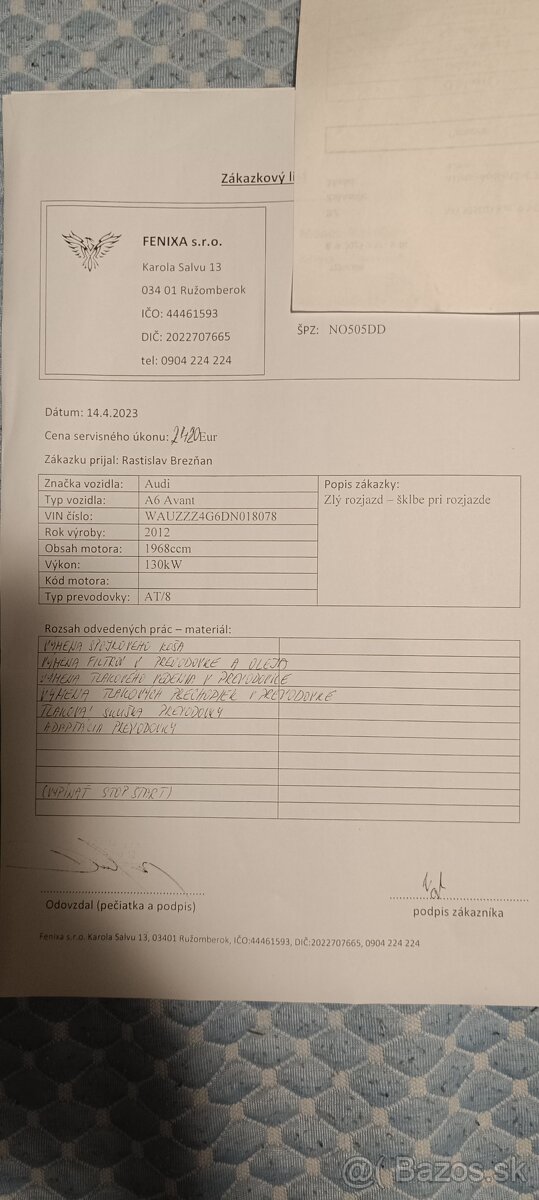 Zákazkový
FENIXA s.r.o.
Karola Salvu 13
034 01 Ružomberok
IČO: 44461593
DIČ: 2022707665
tel: 0904 224 224
ŠPZ: NO505DD
Dátum: 14.4.2023
Cena servisného úkonu: 2420 Eur
Zákazku prijal: Rastislav Brezňan
Značka vozidla: Audi
Typ vozidla: A6 Avant
VIN číslo: WAUZZZ4G6DN018078
Rok výroby: 2012
Obsah motora: 1968ccm
Výkon: 130kW
Kód motora:
Typ prevodovky: AT/8
Popis zákazky:
Zlý rozjazd – šklbe pri rozjazde
Rozsah odvedených prác – materiál:
VÝMENA SPOJKOVÉHO KOŠA
VÝMENA FILTROV V PREVODOVKE A OLEJA
VÝMENA TLAKOVÉHO VEDENIA V PREVODOVKE
VÝMENA TLAKOVÝCH PRECHODIEK V PREVODOVKE
TLAKOVÁ SKÚŠKA PREVODOVKY
ADAPTÁCIA PREVODOVKY
(VYPÍNAT STOP START)
Odovzdal (pečiatka a podpis)
podpis zákazníka
Fenixa s.r.o. Karola Salvu 13, 03401 Ružomberok, IČO:44461593, DIČ:2022707665, 0904 224 224
@ Bazos.sk